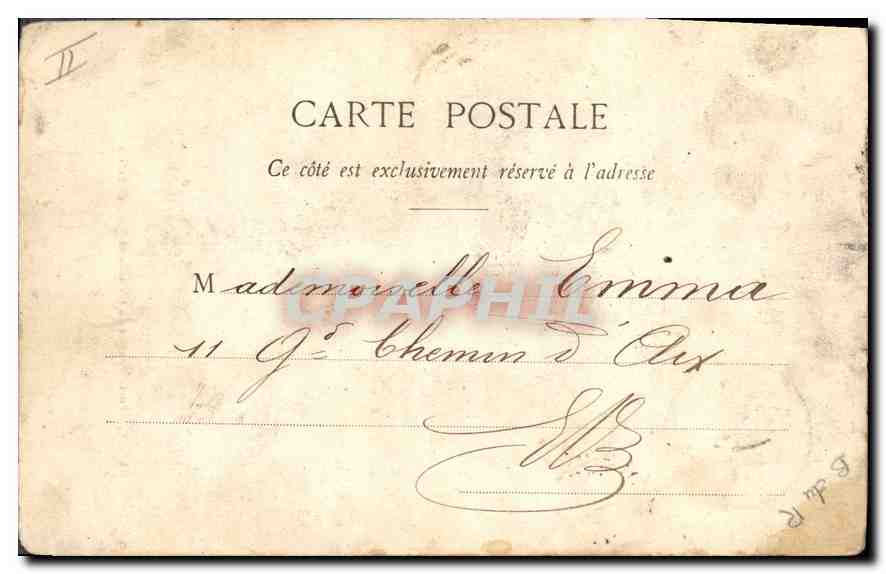 II
CARTE POSTALE
Ce côté est exclusivement réservé à l'adresse
Mademoiselle Emma
11 Gd Chemin d'Aix
CPAPHIL
B du R